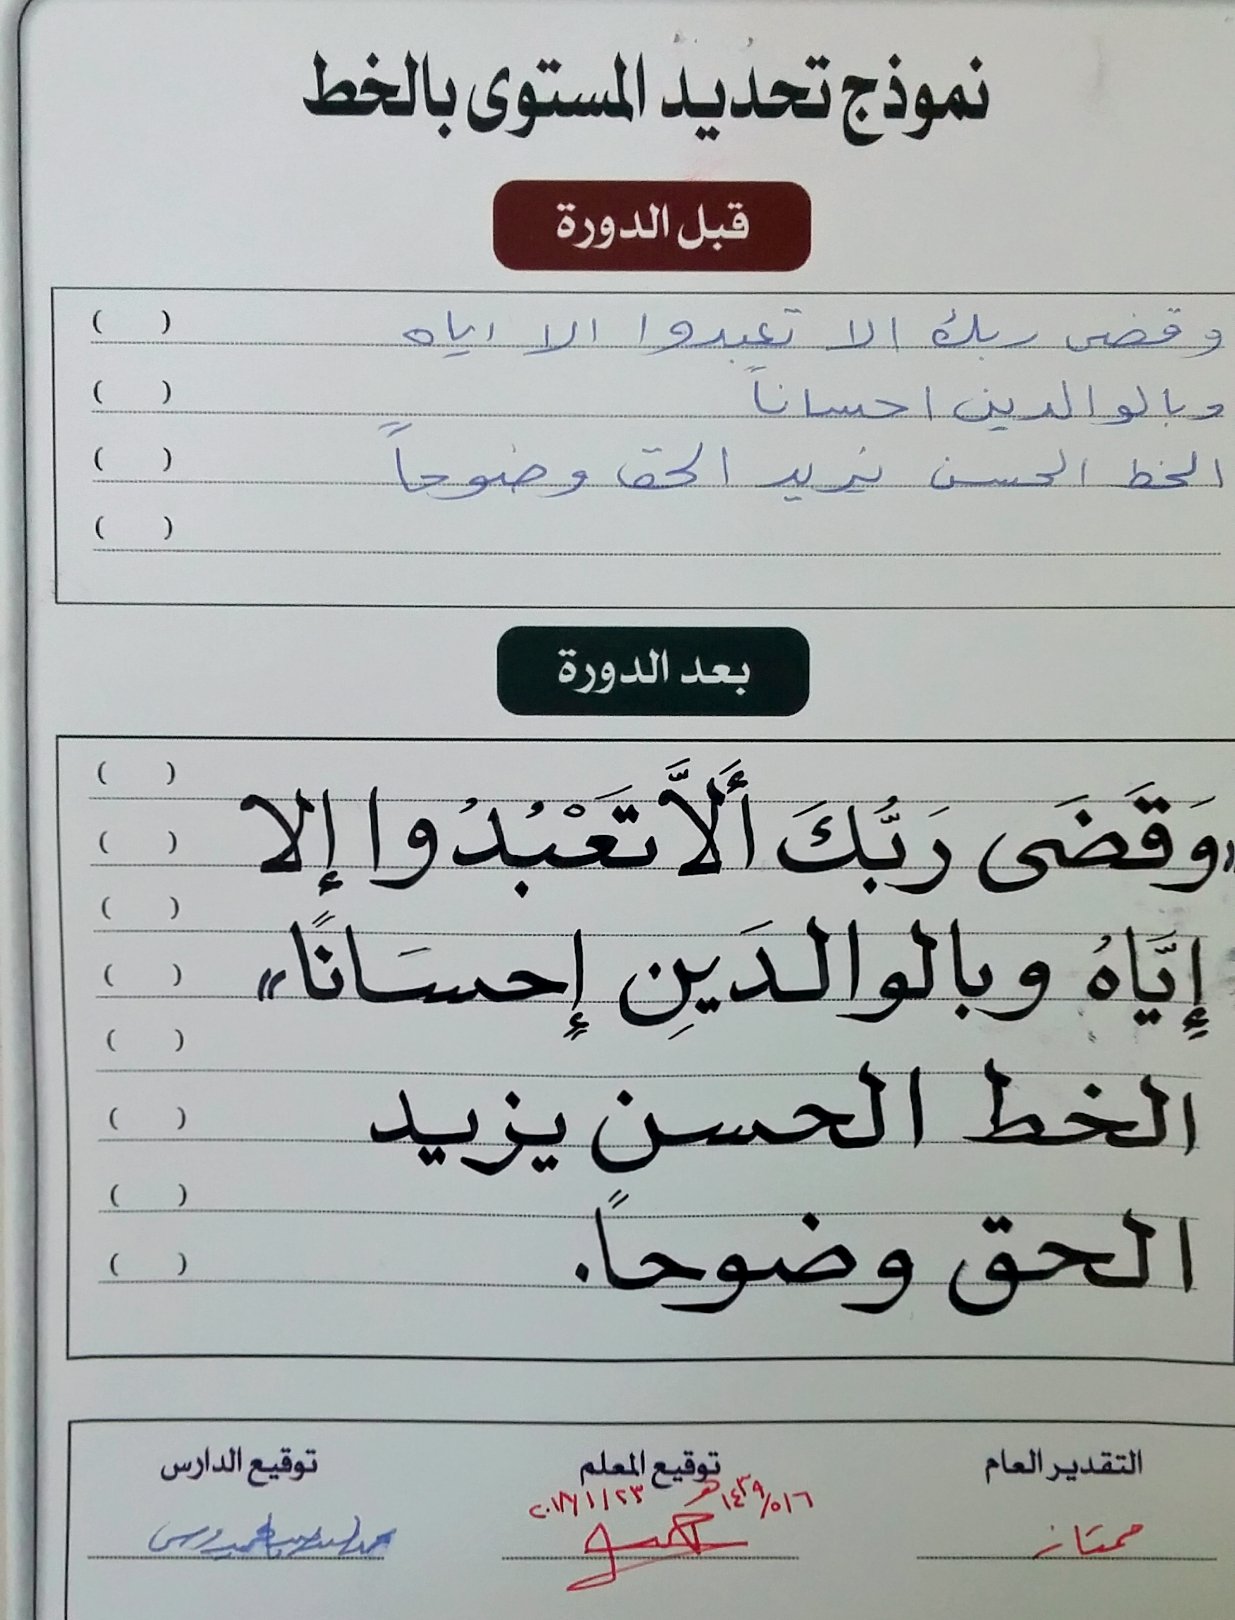 نموذج تحديد المستوى بالخط
قبل الدورة
( )
وقضى ربك الا تعبدوا الا اياه
( )
وبالوالدين احساناً
( )
الخط الحسن يزيد الحق وضوحاً
( )
بعد الدورة
( )
( )
«وَقَضَى رَبُّكَ أَلَّا تَعْبُدُوا إلا
( )
( )
إِيَّاهُ وبالوالدَينِ إِحسَانًا»
( )
( )
الخط الحسن يزيد
( )
( )
الحق وضوحاً.
التقدير العام
توقيع المعلم
توقيع الدارس
ممتاز
١٤٣٩/٥/٦هـ
٢٠١٨/١/٢٣